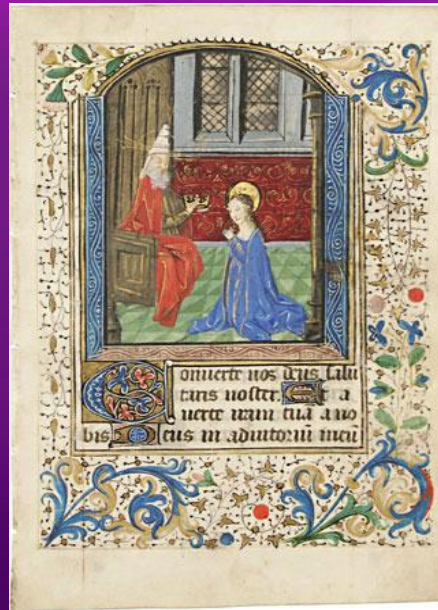 Conuerte nos deus salu
taris noster. Et a
uerte iram tuā a no
bis Deus in adiutoriū meū